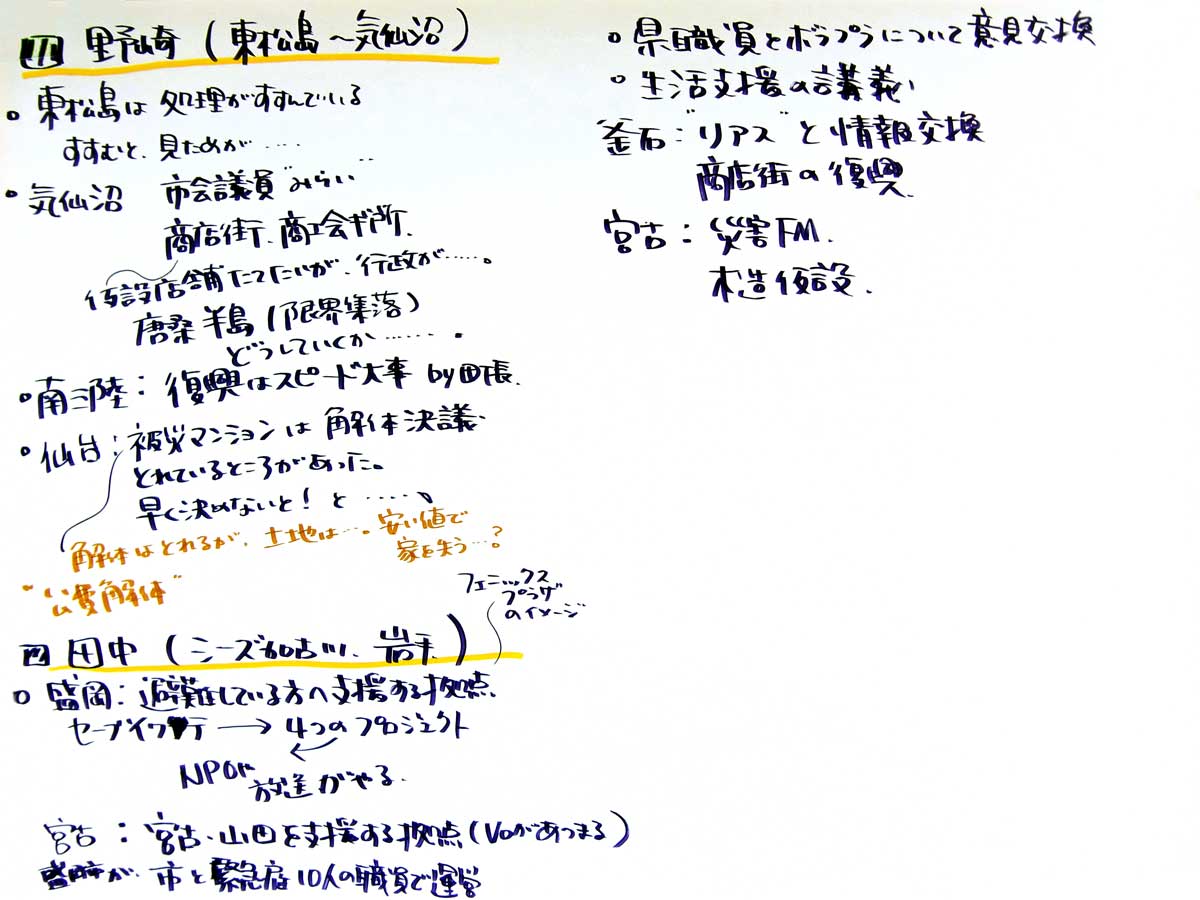 野崎（東松島～気仙沼）
○ 東松島は 処理がすすんでいる
すすむと、見ためが‥‥
○ 気仙沼 市会議員 "みらい"
商店街、商工会ギ所.
仮設店舗たてたいが、行政が‥‥。
唐桑半島（限界集落）
どうしていくか‥‥‥.
○ 南三陸：復興はスピード大事 by町長.
○ 仙台：被災マンションは 解体決議
とれているところがあった。
早く決めないと！と‥‥、
解体はとれるが、土地は‥。安い値で
家を失う‥？
"公費解体"
フェニックス
プラザ
のイメージ
田中（シーズ加古川、岩手）
○ 盛岡：避難している方へ支援する拠点
セーブイワテ → 4つのプロジェクト
NPOや
放送がやる.
宮古：宮古・山田を支援する拠点（Voがあつまる）
が、市と緊急雇10人の職員で運営
○ 県職員とボラプラについて意見交換
○ 生活支援の講義
釜石："リアス"と情報交換
商店街の復興.
宮古：災害FM.
木造仮設.